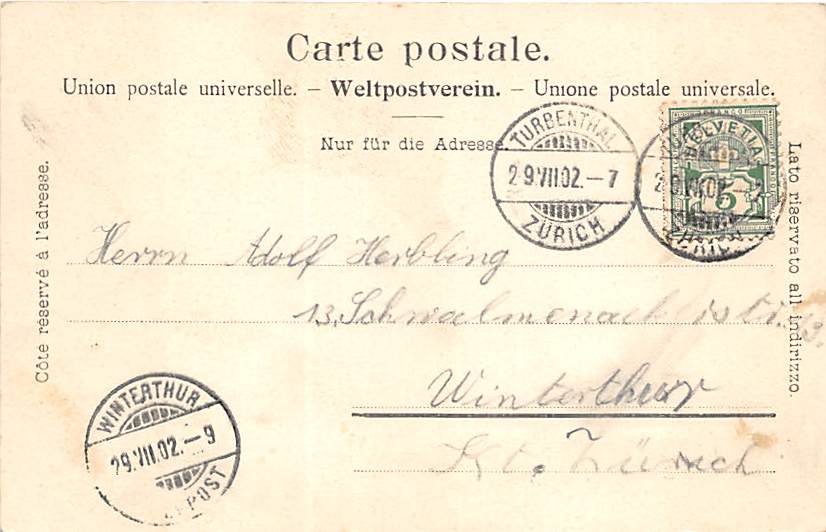 Carte postale.
Union postale universelle. – Weltpostverein. – Unione postale universale.
Nur für die Adresse.
TURBENTHAL
29.VII.02.–7
ZÜRICH
HELVETIA
5
Côte réservé à l'adresse.
Lato riservato all indirizzo.
Herrn Adolf Herbling
13,
Winterthur
Kt. Zürich
WINTERTHUR
29.VII.02.–9